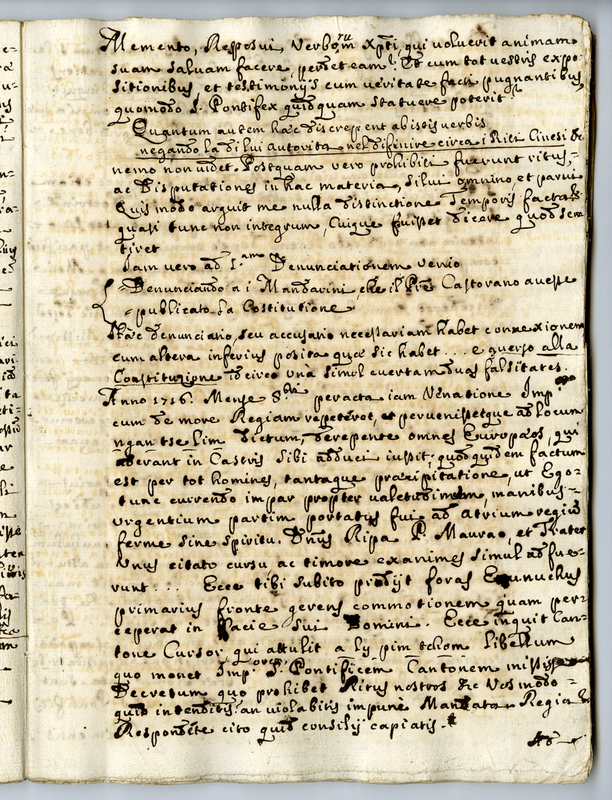 Memento, Resposui, Verborum Xpti, qui voluerit animam
suam salvam facere, perdet eam. Et cum tot vestris expo
sitionibus, et testimonijs cum veritate facti pugnantibus
quomodo S. Pontifex quidquam statuere poterit?
Quantum autem haec discrepent ab istis verbis
negando la di lui Autorità nel difinire circa i Riti Cinesi &c
nemo non videt. Postquam vero prohibiti fuerunt ritus,
ac Disputationes in hac materia, silui omnino, et parui
Quis modo arguit me nulla distinctione Temporis facta
quasi tunc non integrum, Cuique fuisset dicere quod sen
tiret
Iam vero ad 1.am Denunciationem venio
Denunciando a i Mandarini, che il Pre Castorano avesse
publicato la Costitutione
Haec denunciatio, seu accusatio necessariam habet connexionem
cum altera inferius posita quae sic habet .. e querso alla
Constitutione idcirco una simul evertam duas falsitates.
Anno 1716. Mense 8bri peracta iam Venatione Imp
cum de more Regiam repeteret, et pervenissetque ad locum
ngan tse lim dictum, derepente omnes Europaeos, qui
aderant in Castris sibi adduci iussit; quod quidem factum
est per tot homines, tantaque praecipitatione, ut Ego
tunc currendo impar propter valetudinem, manibus
urgentium partim portatus fui ad Atrium regium
ferme sine spiritu. Dnus Ripa P. Maurao, et Frater
unus citato cursu ac timore exanimes simul adfue
runt ... Ecce tibi subito prodijt foras Eunuchus
primarius fronte gerens commotionem quam per
ceperat in Facie sui Domini. Ecce inquit Can
tone Cursor qui attulit a ly pim tchom libellum
quo monet Imp. S. Pontificem Cantonem misisse
Decretum quo prohibet Ritus nostros &c Vos modo
quid intenditis? an violabitis impune Mandata Regia &c
Respondete cito quid consilij capiatis.